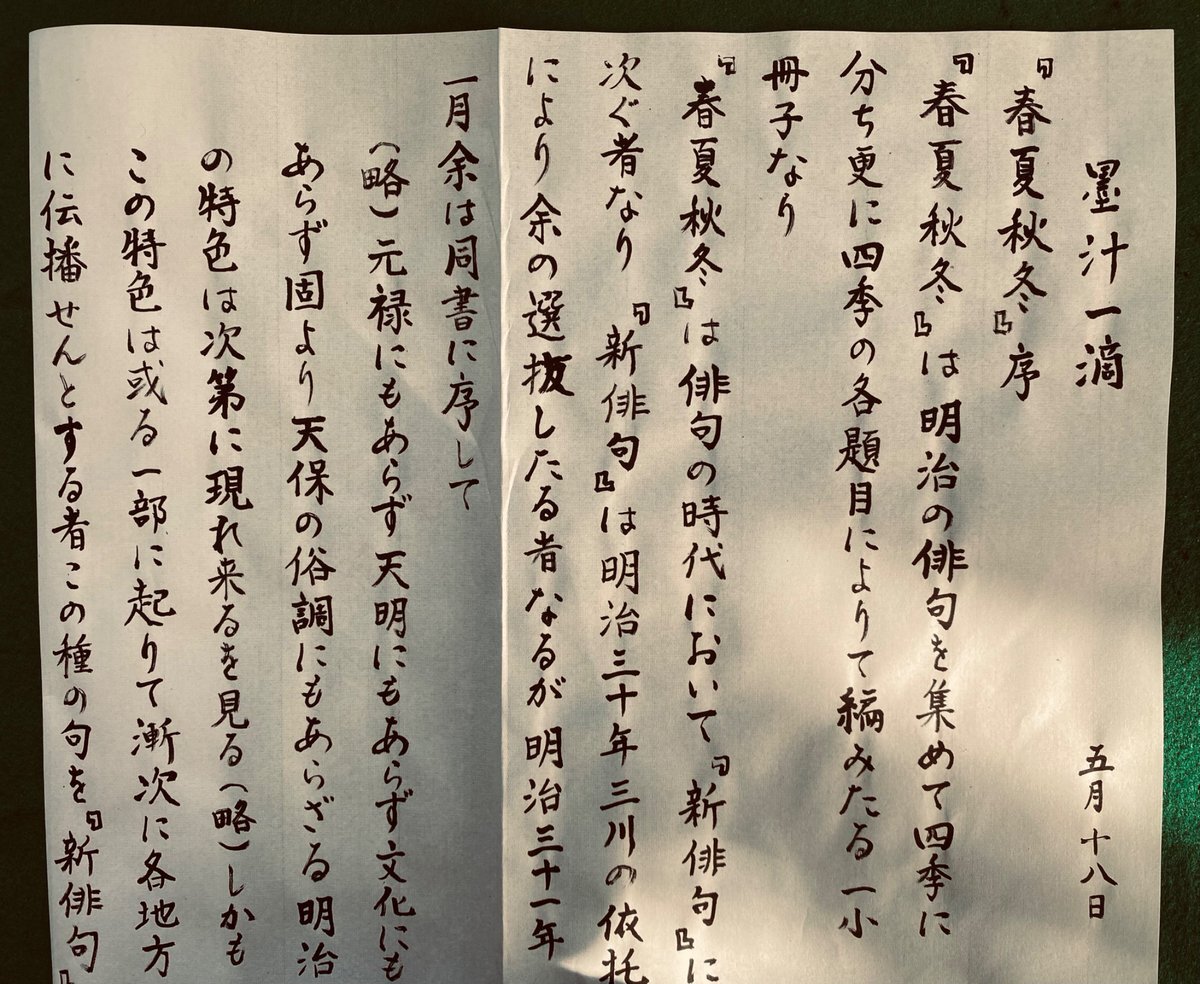 墨汁一滴 五月十八日
『春夏秋冬』序
『春夏秋冬』は明治の俳句を集めて四季に
分ち更に四季の各題目によりて編みたる一小
冊子なり
『春夏秋冬』は俳句の時代において『新俳句』に
次ぐ者なり『新俳句』は明治三十年三川の依托
により余の選抜したる者なるが明治三十一年
一月余は同書に序して
(略)元禄にもあらず天明にもあらず文化にも
あらず固より天保の俗調にもあらざる明治
の特色は次第に現れ来るを見る(略)しかも
この特色は或る一部に起りて漸次に各地方
に伝播せんとする者この種の句を『新俳句』